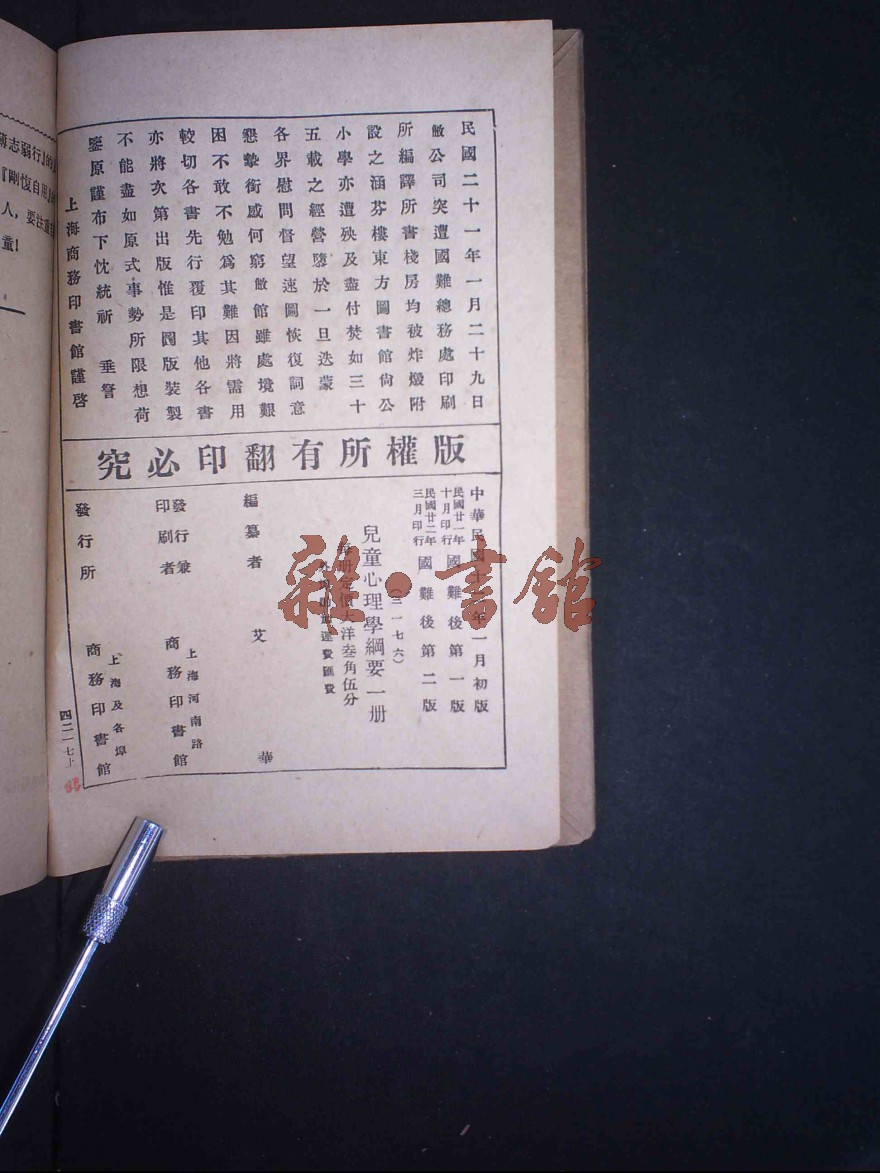 民國二十一年一月二十九日
敝公司突遭國難總務處印刷
所編譯所書棧房均被炸燬附
設之涵芬樓東方圖書館尙公
小學亦遭殃及盡付焚如三十
五載之經營隳於一旦迭蒙
各界慰問督望速圖恢復詞意
懇摯銜感何窮敝館雖處境艱
困不敢不勉爲其難因將需用
較切各書先行覆印其他各書
亦將次第出版惟是圖版裝製
不能盡如原式事勢所限想荷
鑒原謹布下忱統祈 垂詧
上海商務印書館謹啓
版權所有翻印必究
中華民國十 年一月初版
民國廿一年十月印行 國難後第一版
民國廿二年三月印行 國難後第二版
(三一七六)
兒童心理學綱要一册
每册定價大洋叁角伍分
運費匯費
編纂者 艾華
發行兼印刷者 上海河南路 商務印書館
發行所 上海及各埠 商務印書館
四二一七上
薄志弱行』的
『剛愎自用』
人，要注
童!
雜·書館